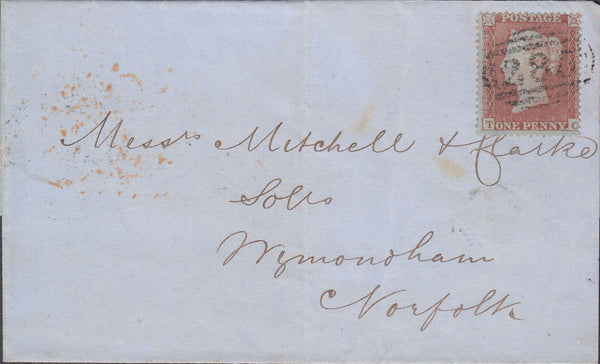 POSTAGE
T ONE PENNY C
Messrs Mitchell & Clarke
Solrs
Wymondham
Norfolk